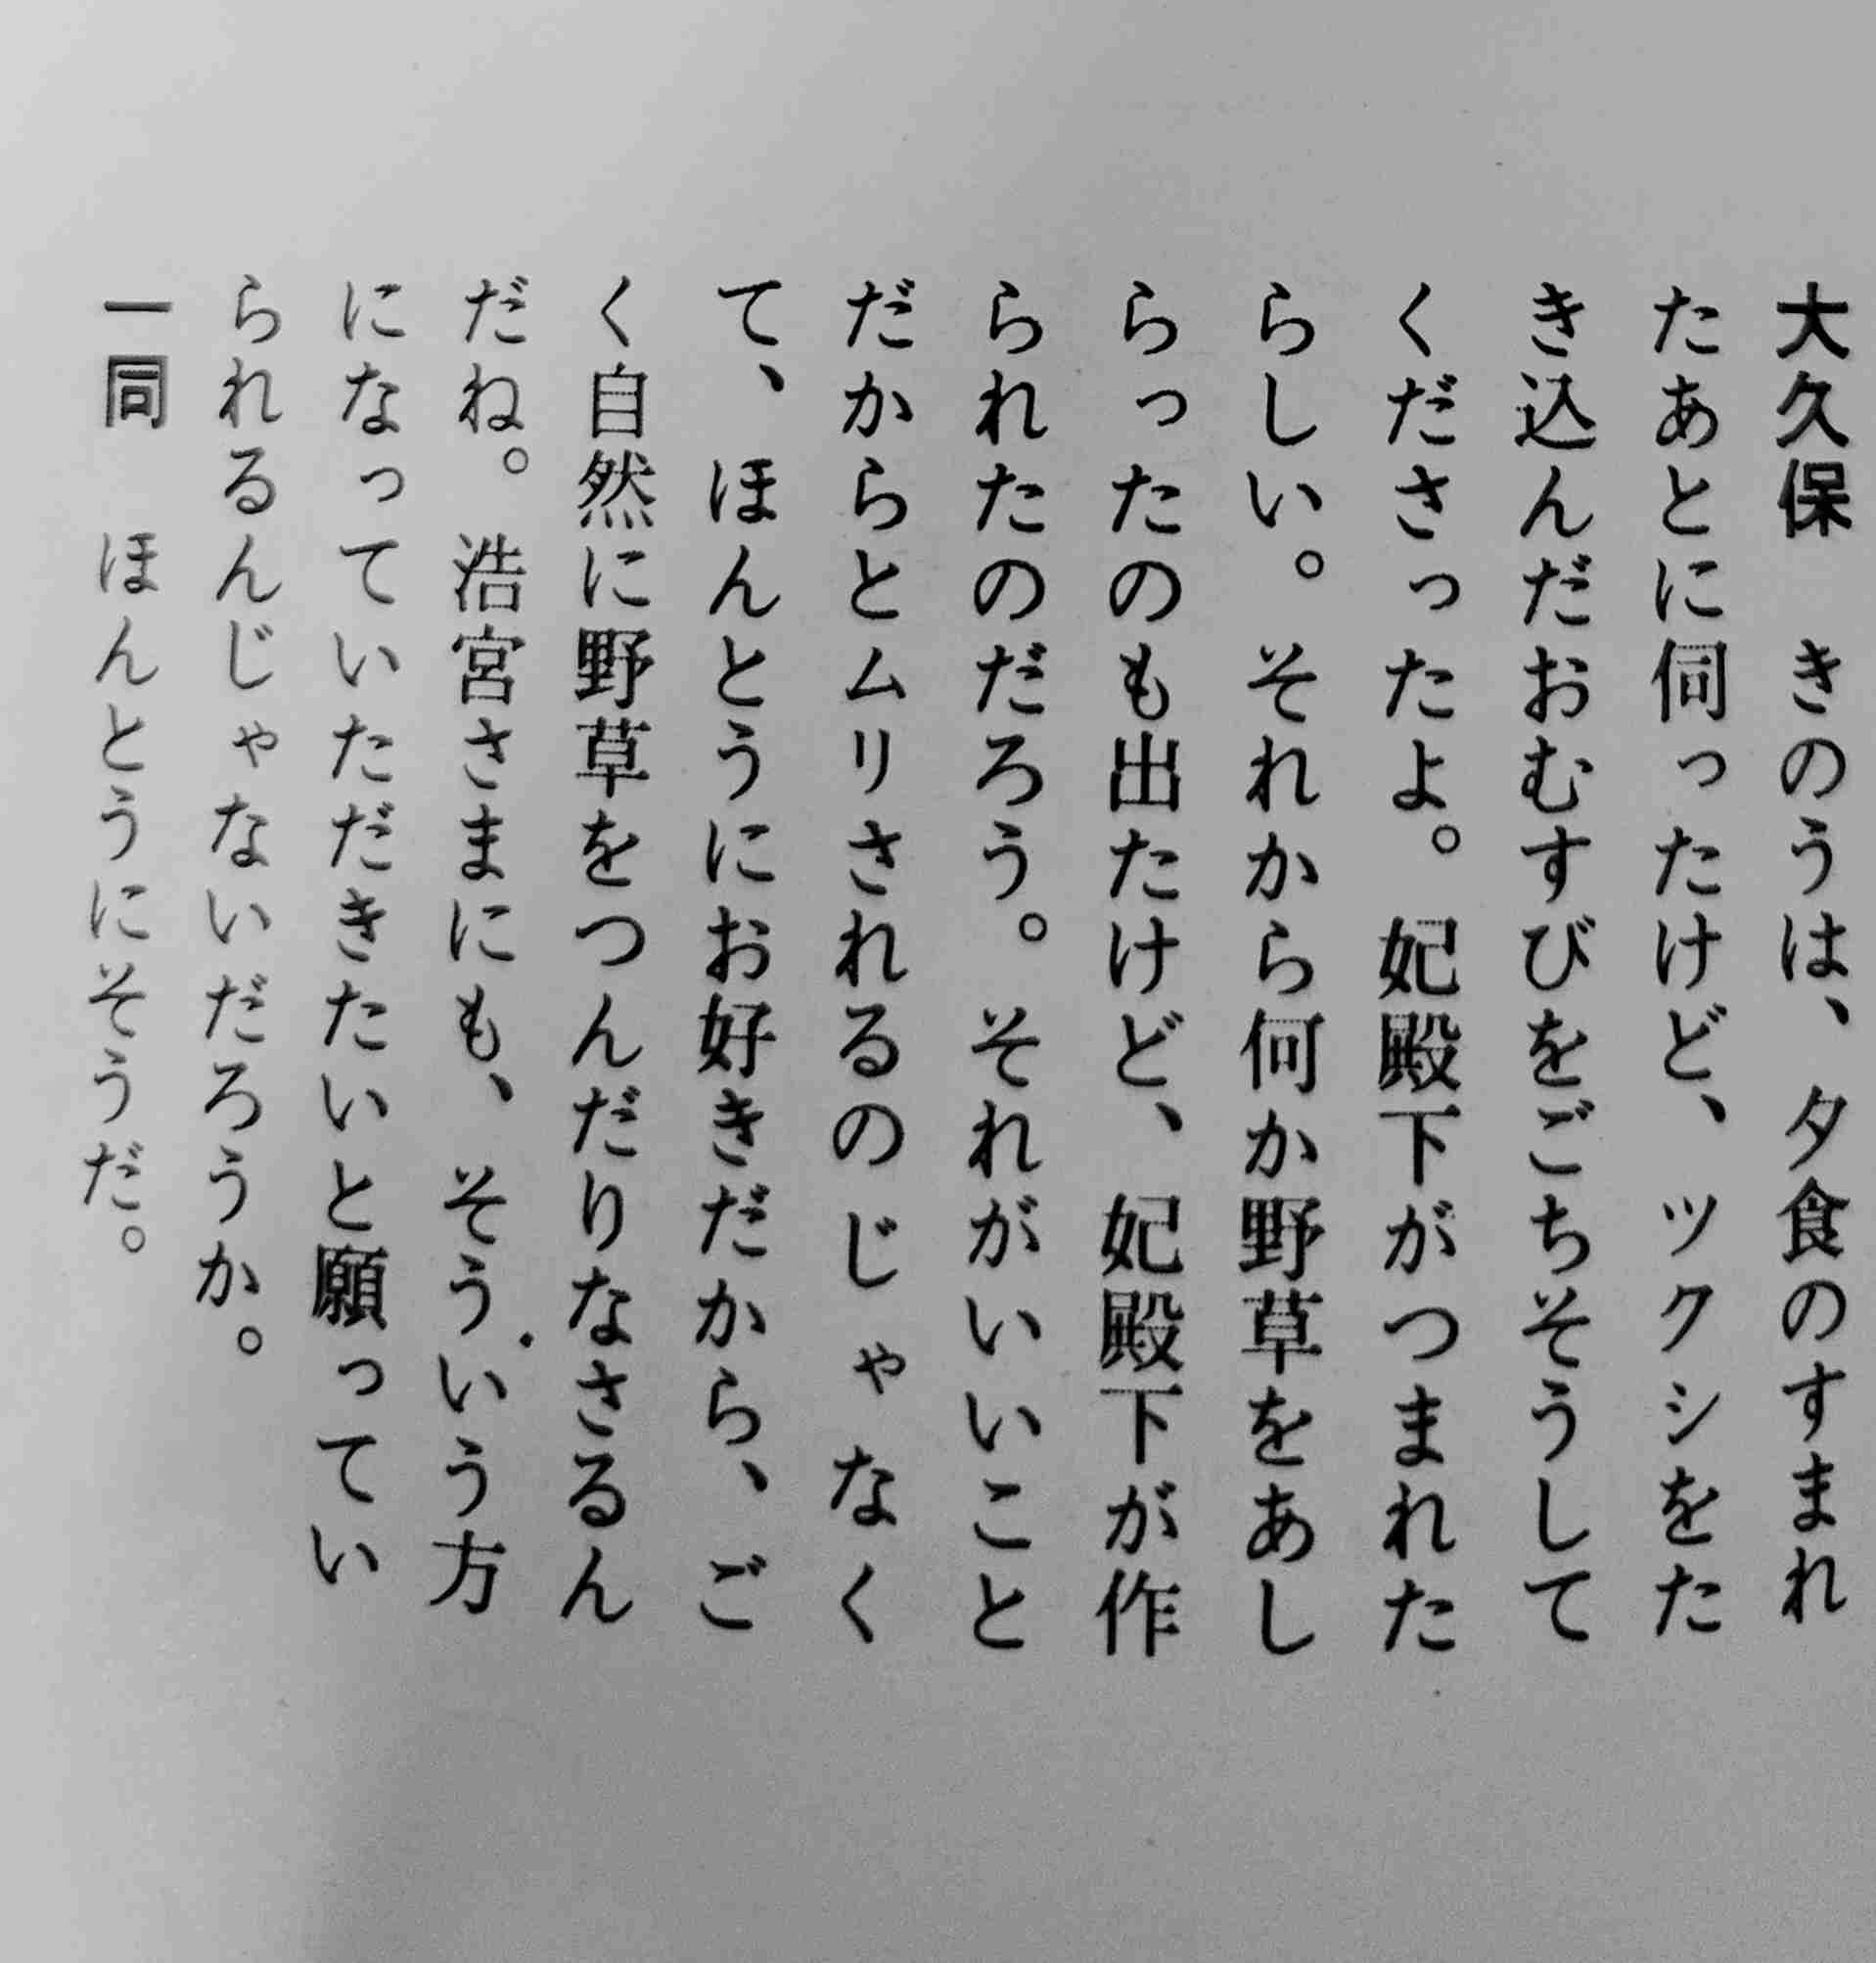 大久保　きのうは、夕食のすまれ
たあとに伺ったけど、ツクシをた
き込んだおむすびをごちそうして
くださったよ。妃殿下がつまれた
らしい。それから何か野草をあし
らったのも出たけど、妃殿下が作
られたのだろう。それがいいこと
だからとムリされるのじゃなく
て、ほんとうにお好きだから、ご
く自然に野草をつんだりなさるん
だね。浩宮さまにも、そういう方
になっていただきたいと願ってい
られるんじゃないだろうか。
一同　ほんとうにそうだ。